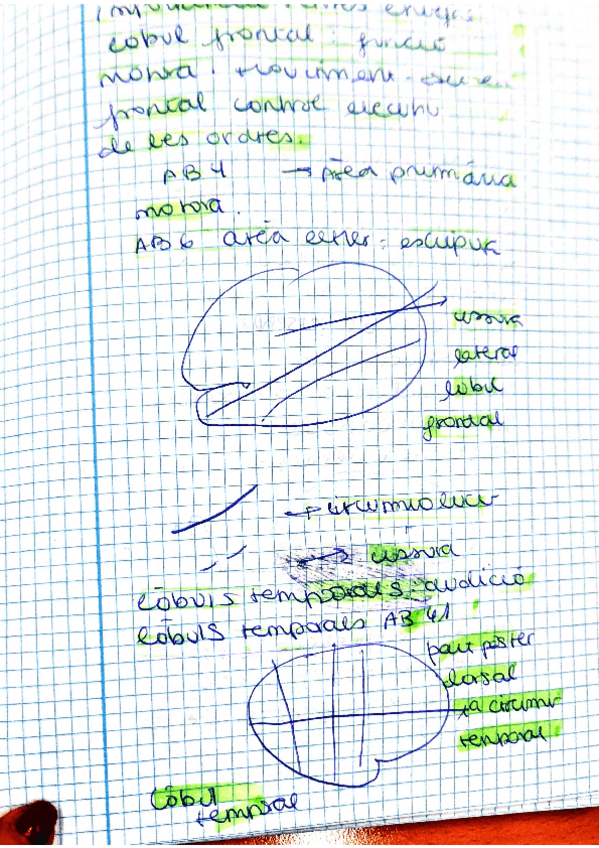 lobul frontal: funció
motora. moviment
frontal control executiu
de les ordres.
AB 4 → Àrea primària
motora.
AB 6 àrea
cissura
lateral
lòbul
frontal
→ circumvolució
cissura
lòbuls temporals: audició
lòbuls temporals AB 41
part poster
dorsal
1a circumv
temporal
lòbul
temporal